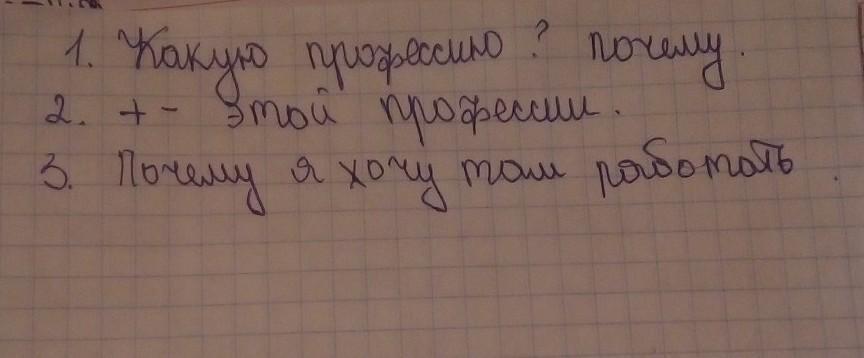 1. Какую профессию? почему.
2. + - этой профессии.
3. Почему я хочу там работать.